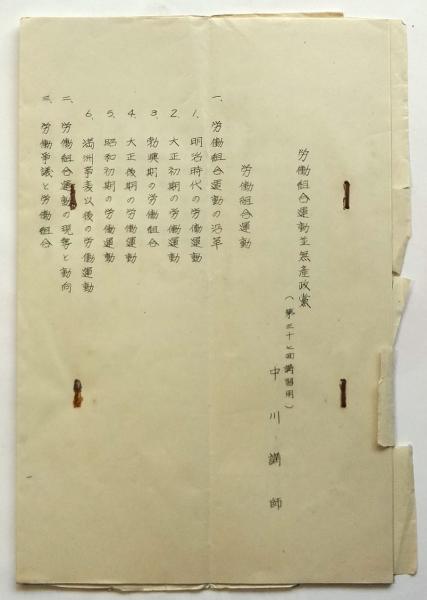 労働組合運動並無産政党
（第三十七回講習用）
中川講師
労働組合運動
一、労働組合運動の沿革
1. 明治時代の労働運動
2. 大正初期の労働運動
3. 勃興期の労働組合
4. 大正後期の労働運動
5. 昭和初期の労働運動
6. 満洲事変以後の労働運動
二、労働組合運動の現勢と動向
三、労働争議と労働組合